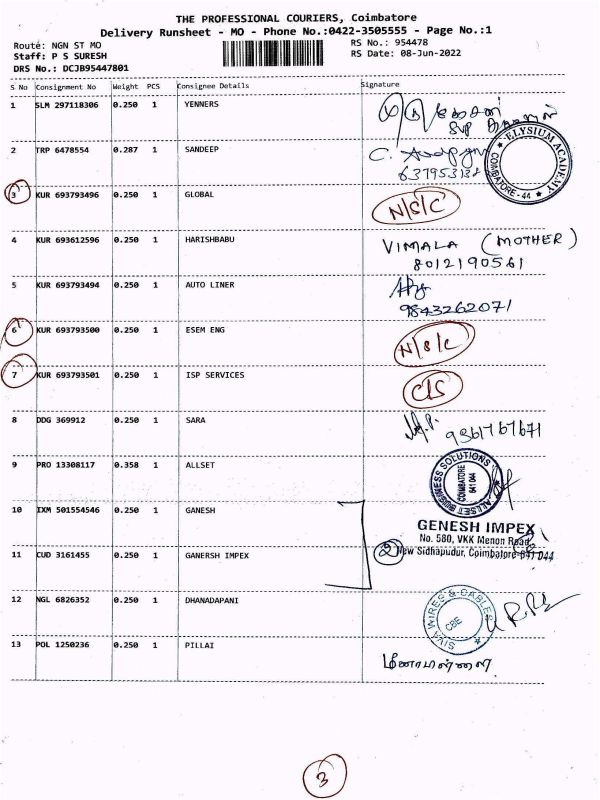 THE PROFESSIONAL COURIERS, Coimbatore
Delivery Runsheet - MO - Phone No.:0422-3505555 - Page No.:1
Route: NGN ST MO
RS No.: 954478
Staff: P S SURESH
RS Date: 08-Jun-2022
DRS No.: DCJB95447801
S No Consignment No Weight PCS Consignee Details Signature
1 SLM 297118306 0.250 1 YENNERS
2 TRP 6478554 0.287 1 SANDEEP
ELYSIUM ACADEMY COIMBATORE - 44
3 KUR 693793496 0.250 1 GLOBAL N/S/C
4 KUR 693612596 0.250 1 HARISHBABU VIMALA (MOTHER)
8012190561
5 KUR 693793494 0.250 1 AUTO LINER
9843262071
6 KUR 693793500 0.250 1 ESEM ENG N/S/C
7 KUR 693793501 0.250 1 ISP SERVICES C/S
8 DDG 369912 0.250 1 SARA 9361767671
9 PRO 13308117 0.358 1 ALLSET
ALLSET BUSINESS SOLUTIONS COIMBATORE 641 044
10 IXM 501554546 0.250 1 GANESH
GENESH IMPEX
No. 580, VKK Menon Road,
11 CUD 3161455 0.250 1 GANERSH IMPEX 2 New Sidhapudur, Coimbatore-641 044
12 NGL 6826352 0.250 1 DHANADAPANI
SIVA WIRES & CABLES CBE
13 POL 1250236 0.250 1 PILLAI
3